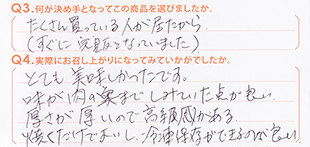 Q3.何が決め手となってこの商品を選びましたか。
たくさん買っている人が居たから
(すぐに完販となっていました)
Q4.実際にお召し上がりになってみていかがでしたか。
とても美味しかったです。
味が肉の奥までしみていた点が良い
厚さが厚いので高級感がある
焼くだけでおいし、冷凍保存ができるのが良い